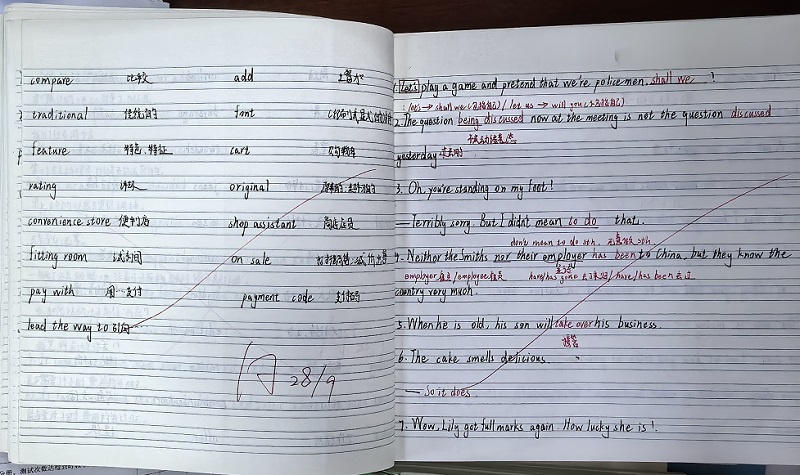 compare 比较 add 增加
traditional 传统的 font
feature 特色、特征 cart
rating 评级 original
convenience store 便利店 shop assistant 商店店员
fitting room 试衣间 on sale
pay with 用…支付 payment code 支付码
lead the way to 引向…
阅 28/9
1. Let's play a game and pretend that we're policemen, shall we ?
let's → shall we (包括) / let us → will you (不包括)
2. The question being discussed now at the meeting is not the question discussed
yesterday. 过去时
3. Oh, you're standing on my foot!
— Terribly sorry. But I didn't mean to do that.
don't mean to do sth. 无意做 sth.
4. Neither the Smiths nor their employer has been to China, but they know the
employer 雇主/employee 雇员 have/has gone 去了未回/have/has been 去过
country very much.
5. When he is old, his son will take over his business.
接管
6. The cake smells delicious.
— So it does.
7. Wow, Lily got full marks again. How lucky she is!